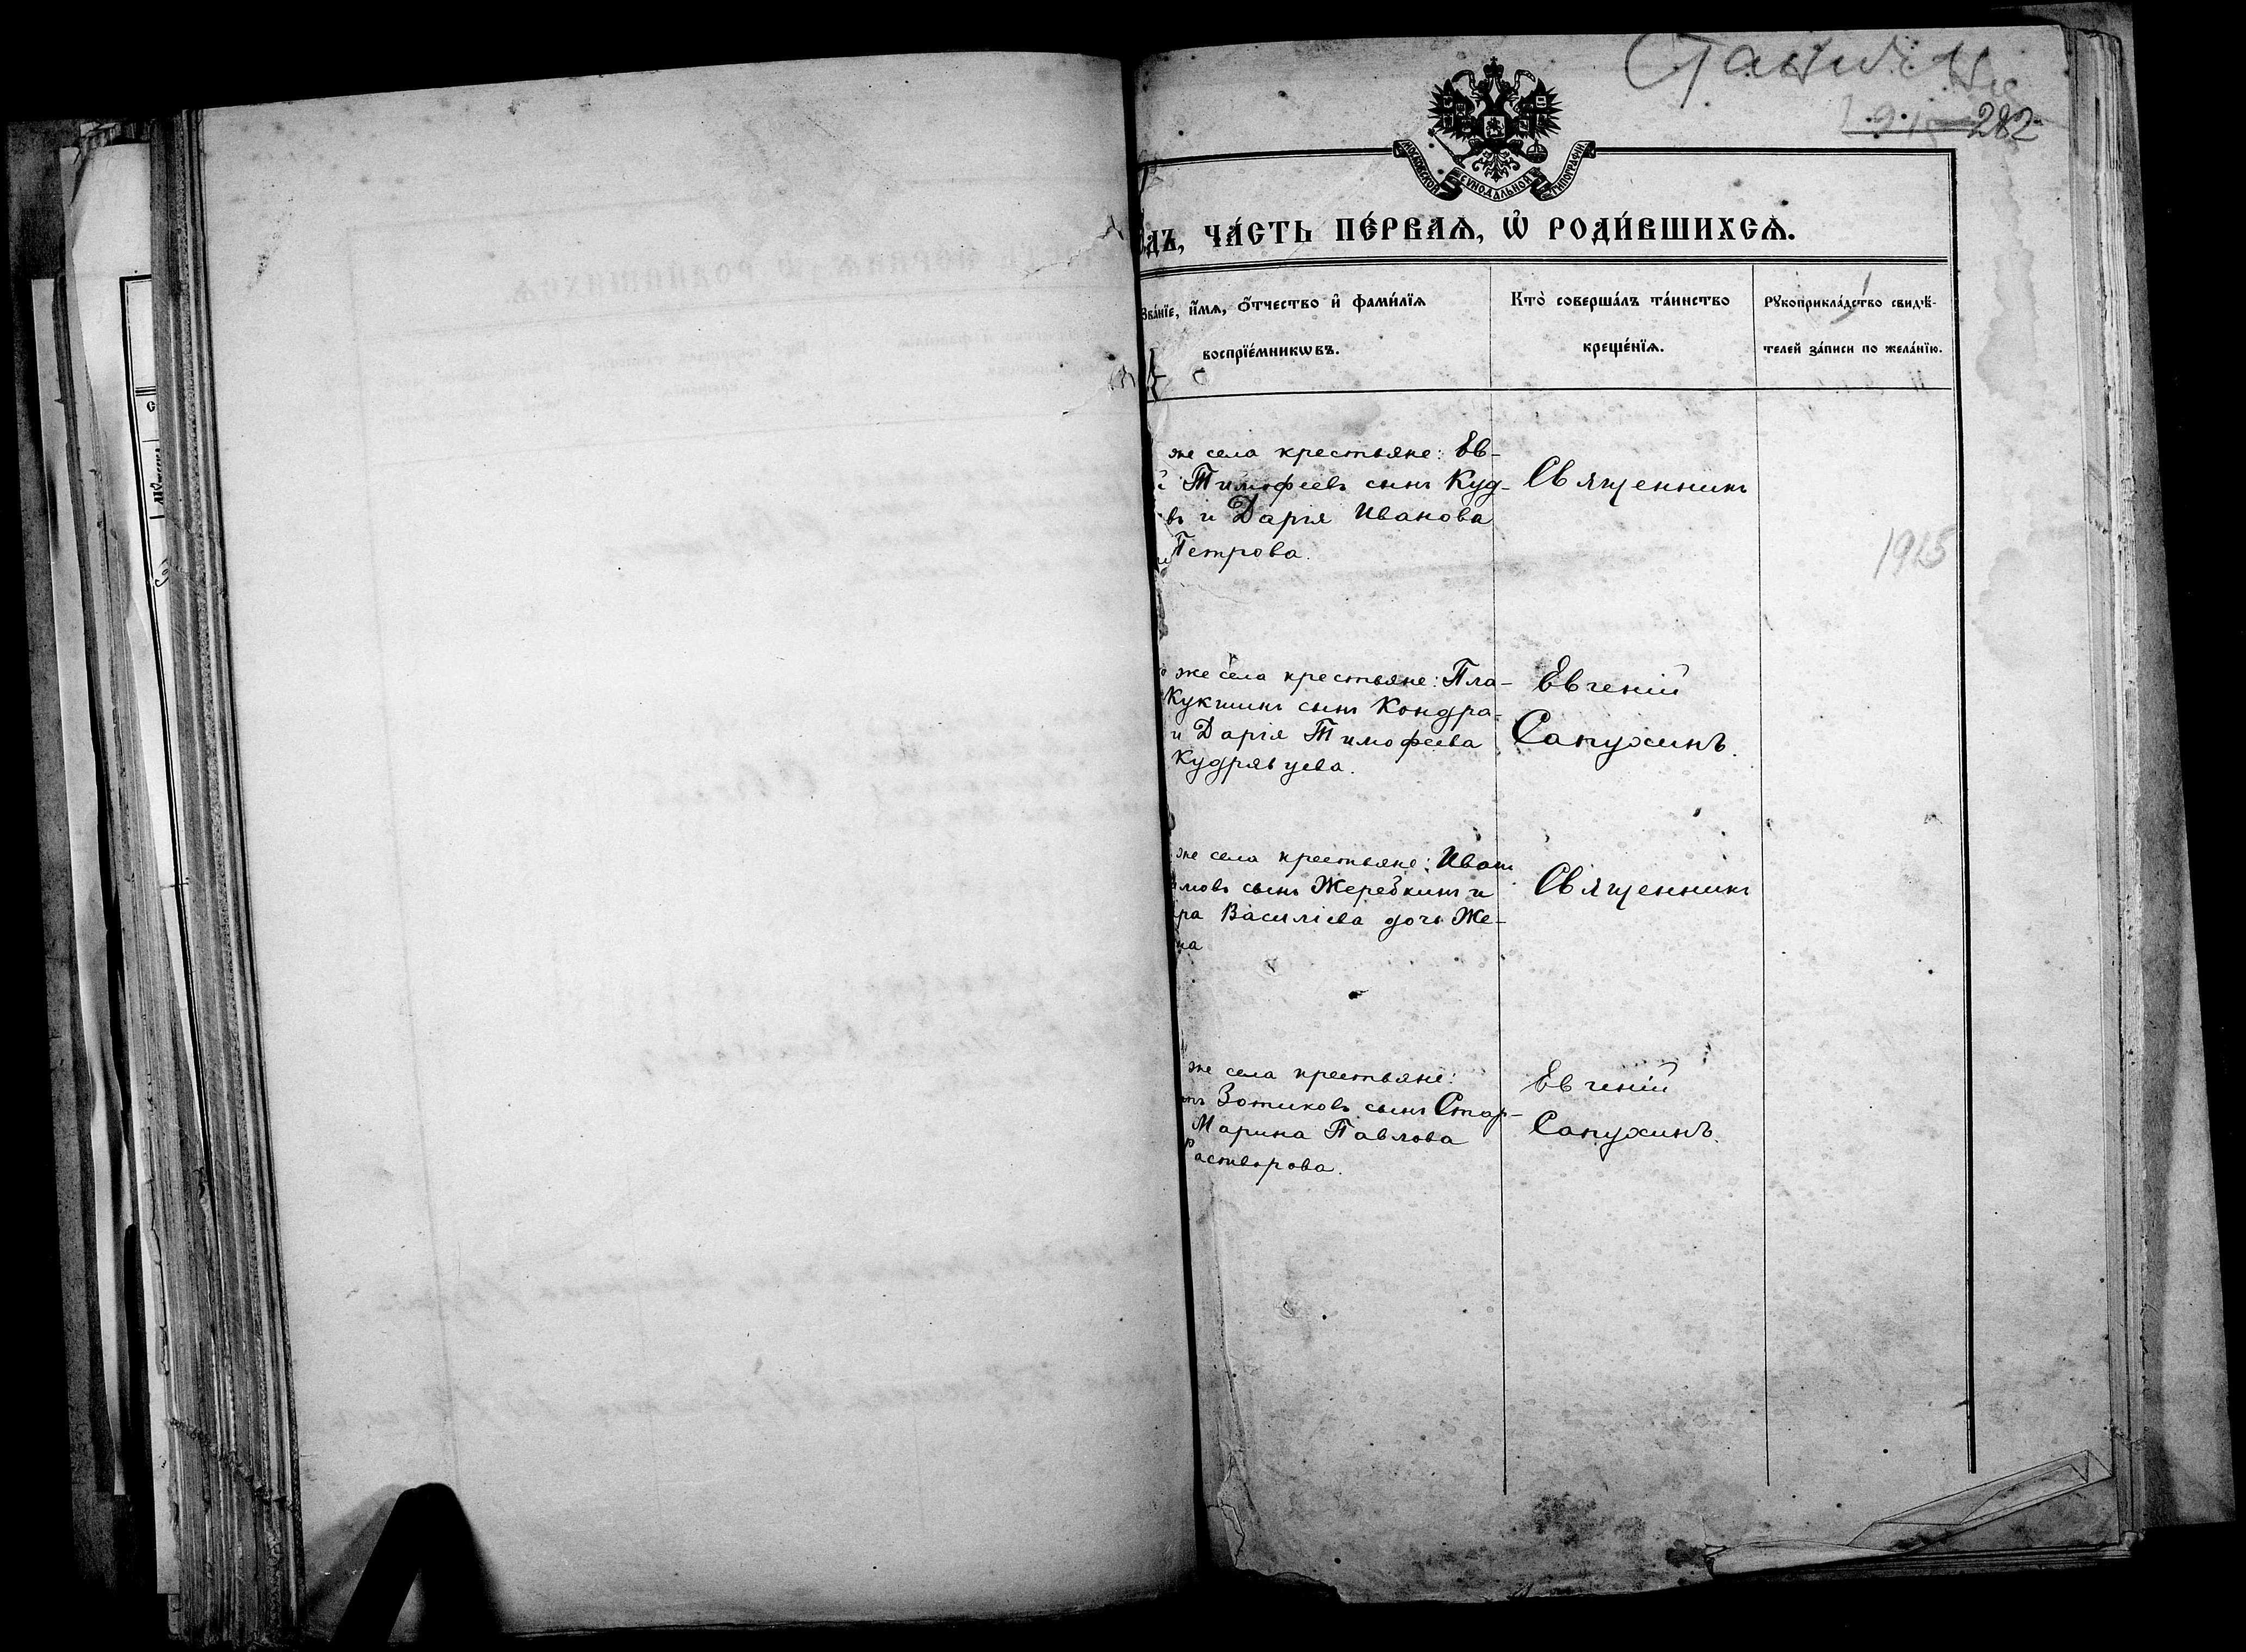 282
МОСКОВСКОЙ СѴНОДАЛЬНОЙ ТИПОГРАФІИ
ДЪ, ЧА́СТЬ ПЕ́РВАѦ, Ѡ҆ РОДИ́ВШИХСѦ.
Зва́нїе, и҆́мѧ, ѻ҆́тчество и҆ фами́лїѧ
воспрїе́мникѡвъ.
Кто̀ соверша́лъ та́инство
креще́нїѧ.
Рꙋкоприкла́дство свидѣ́-
телей за́писи по жела́нїю.
же села крестьяне: Ев-
Тимофеевъ сынъ Куд-
въ и Дарія Иванова
Петрова.
Священникъ
1915
же села крестьяне: Пла-
Кукшинъ сынъ Кондра-
и Дарія Тимофеева
Кудрявцева.
Евгеній
Сапухинъ.
же села крестьяне: Иван
мовъ сынъ Жеребкинъ и
ра Василіева дочь Же-
на
Священникъ
же села крестьяне:
Зотиковъ сынъ Стар-
Марина Павлова
Растворова.
Евгеній
Сапухинъ.